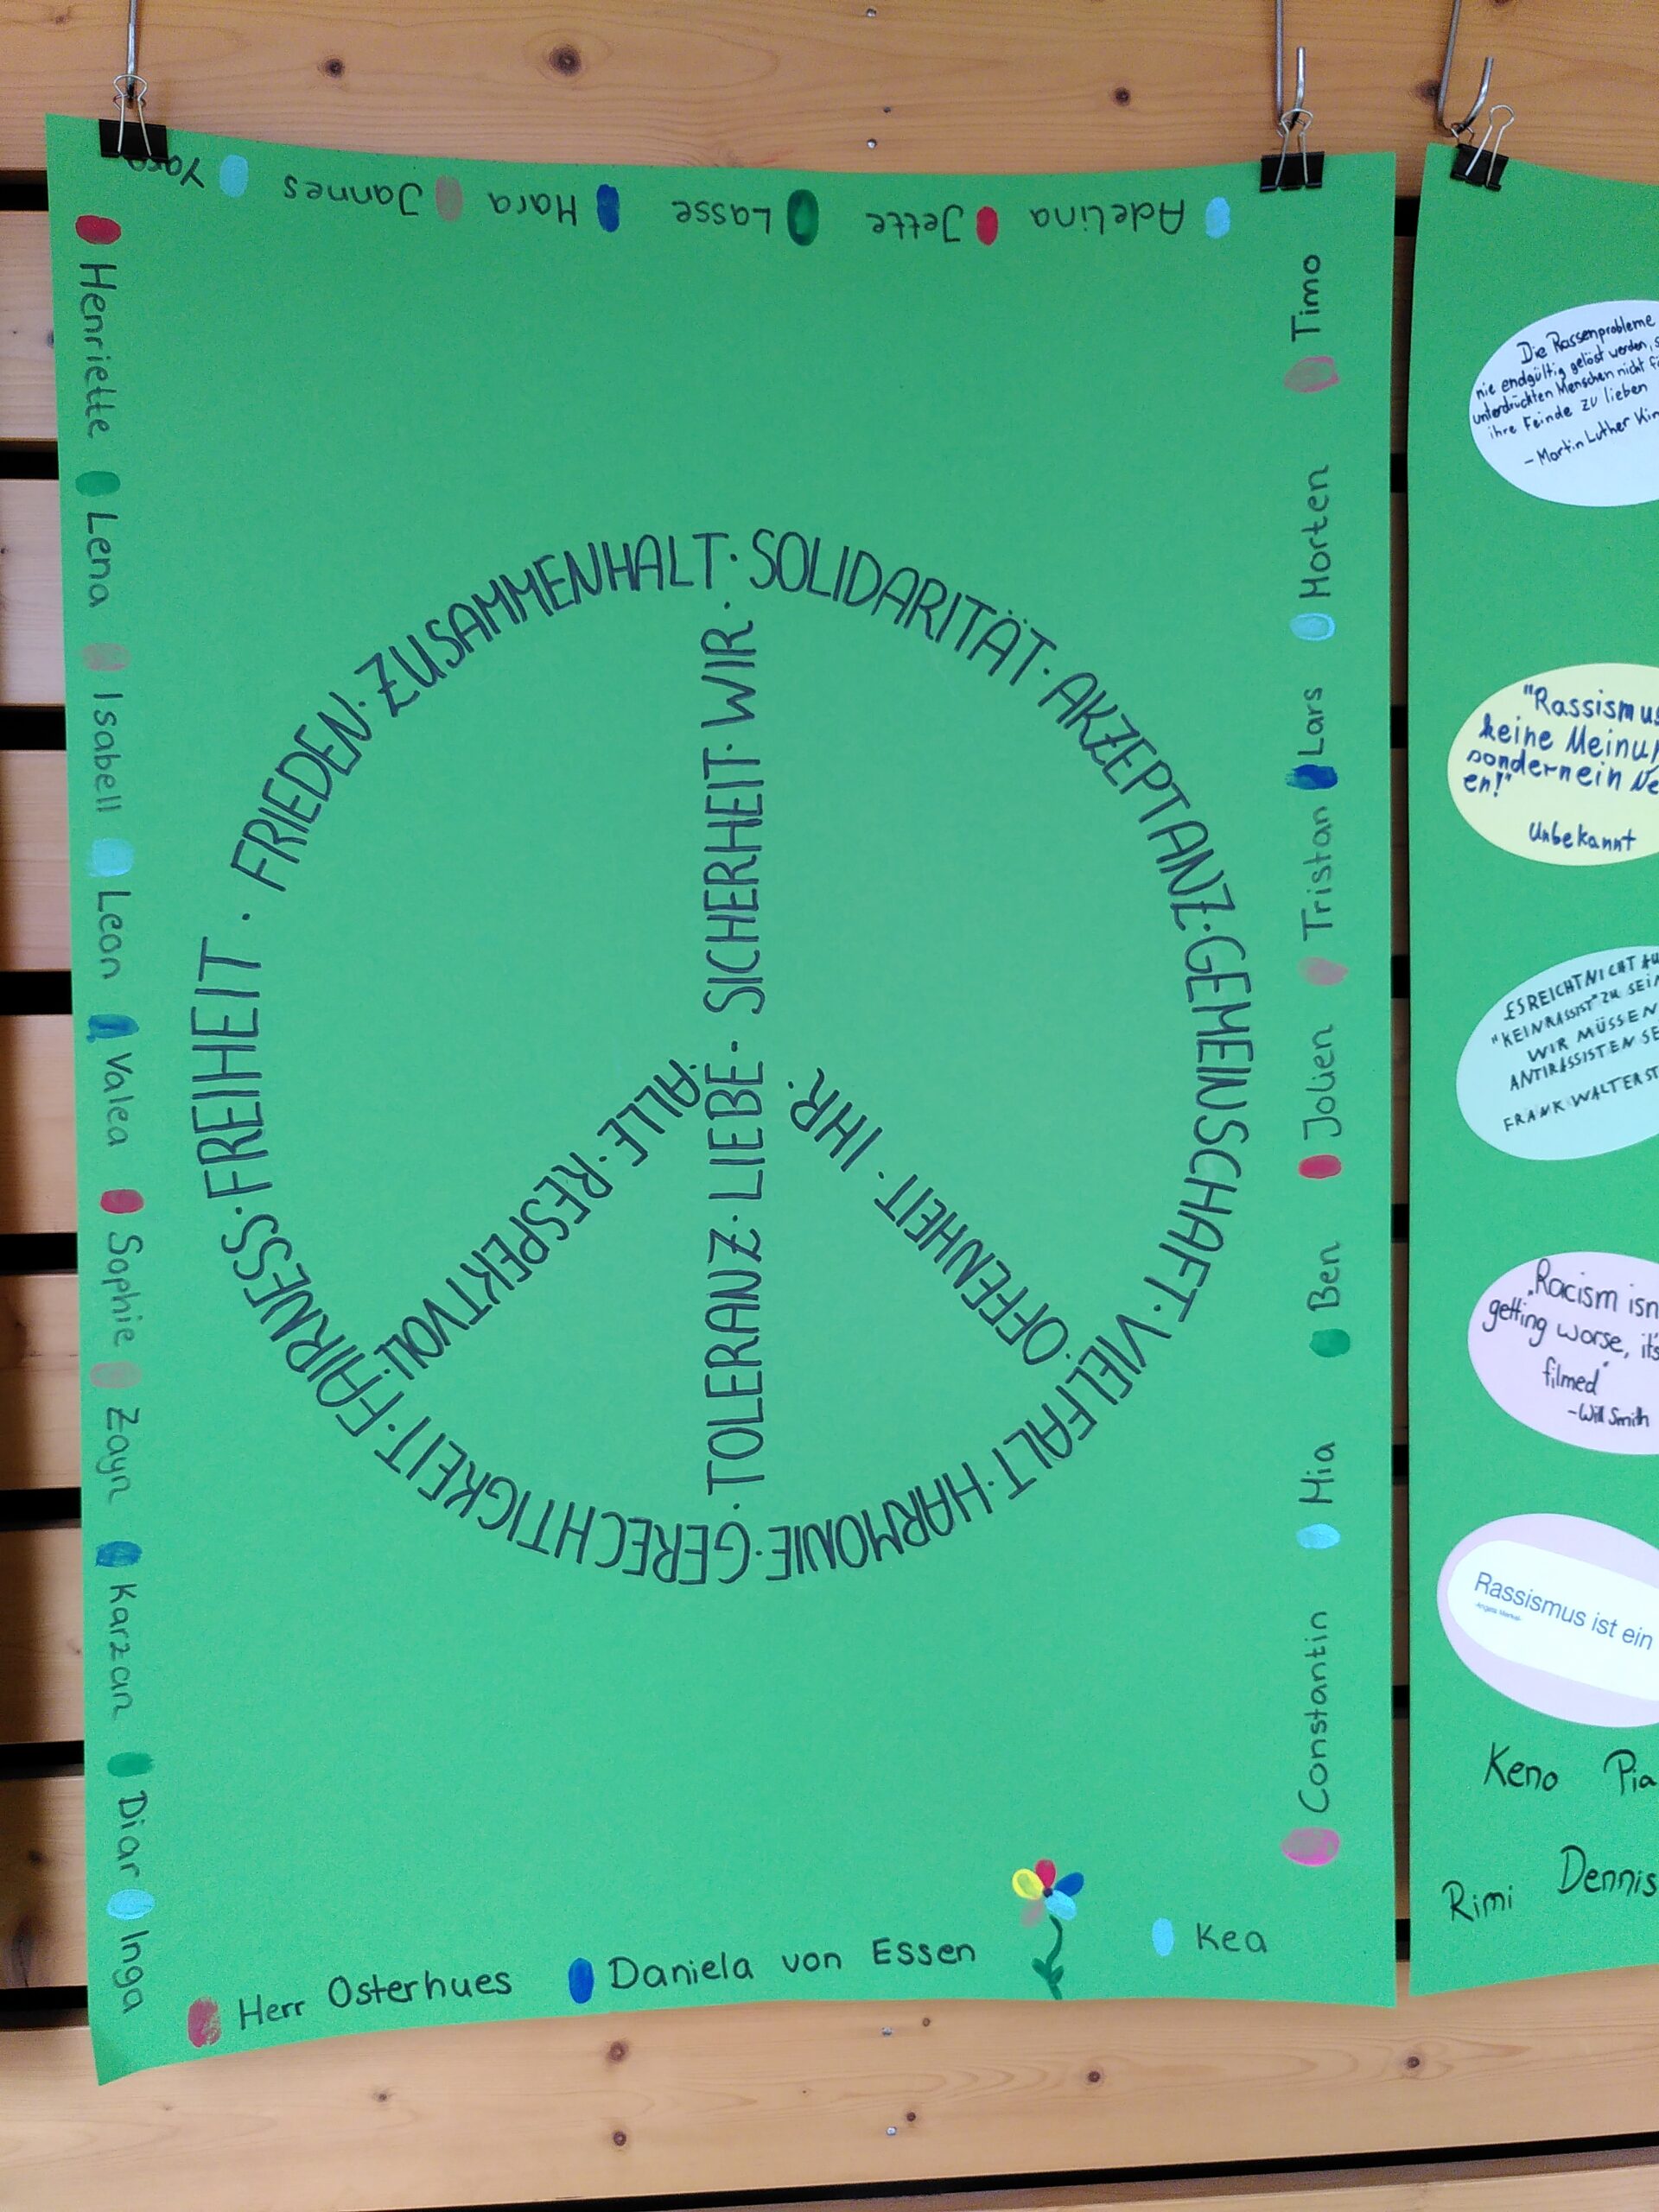 Yara Jannes Hara Lasse Jette Adelina
Henriette Lena Isabell Leon Valea Sophie Zayn Karzan Diar Inga
Timo
Morten
Lars
Tristan
Jolien
Ben
Mia
Constantin
FREIHEIT · FRIEDEN · ZUSAMMENHALT · SOLIDARITÄT · AKZEPTANZ · GEMEINSCHAFT · VIELFALT · HARMONIE · GERECHTIGKEIT · FAIRNESS ·
· TOLERANZ · LIEBE · SICHERHEIT · WIR ·
ALLE · RESPEKTVOLL ·
· OFFENHEIT · IHR ·
Herr Osterhues Daniela von Essen Kea
Die Rassenprobleme
nie endgültig gelöst werden, s
unterdrückten Menschen nicht fä
ihre Feinde zu lieben
- Martin Luther Kin
"Rassismus
keine Meinun
sondern ein Ve
en!"
Unbekannt
ES REICHT NICHT AU
"KEIN RASSIST" ZU SEIN
WIR MÜSSEN
ANTIRASSISTEN SE
FRANK WALTER ST
„Racism isn
getting worse, it's
filmed"
-Will Smith
Rassismus ist ein
-Angela Merkel-
Keno Pia
Rimi Dennis